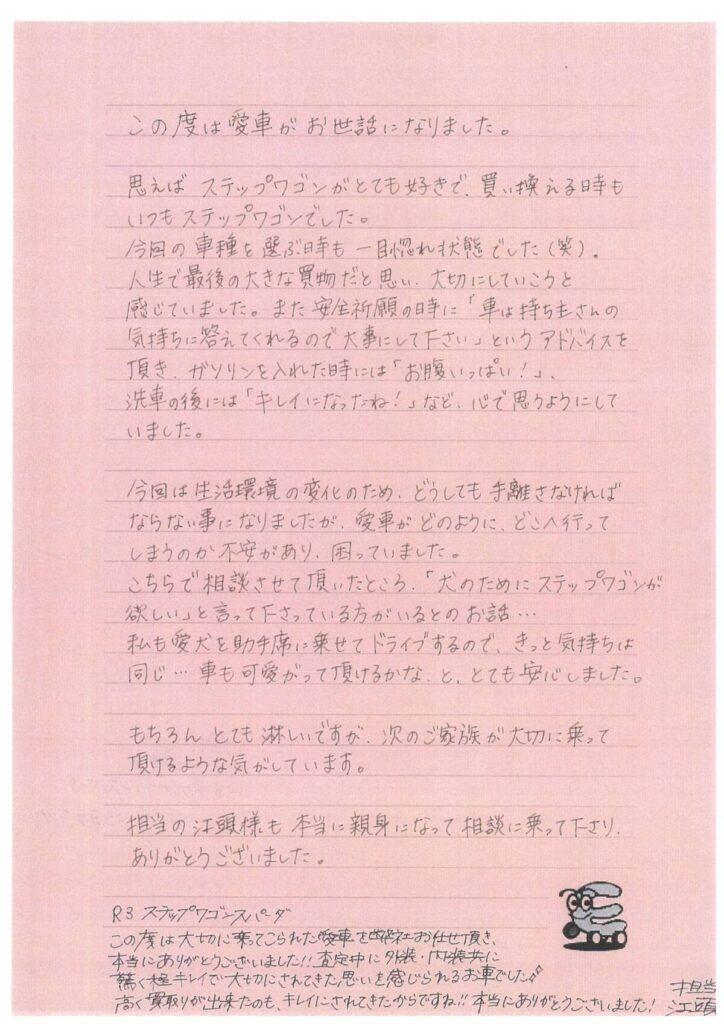 この度は愛車がお世話になりました。
思えばステップワゴンがとても好きで、買い換える時も
いつもステップワゴンでした。
今回の車種を選ぶ時も一目惚れ状態でした(笑)。
人生で最後の大きな買物だと思い、大切にしていこうと
感じていました。また安全祈願の時に「車は持ち主さんの
気持ちに答えてくれるので大事にして下さい」というアドバイスを
頂き、ガソリンを入れた時には「お腹いっぱい!」、
洗車の後には「キレイになったね!」など、心で思うようにして
いました。
今回は生活環境の変化のため、どうしても手離さなければ
ならない事になりましたが、愛車がどのように、どこへ行って
しまうのか不安があり、困っていました。
こちらで相談させて頂いたところ、「犬のためにステップワゴンが
欲しい」と言って下さっている方がいるとのお話…
私も愛犬を助手席に乗せてドライブするので、きっと気持ちは
同じ…車も可愛がって頂けるかな、と、とても安心しました。
もちろんとても淋しいですが、次のご家族が大切に乗って
頂けるような気がしています。
担当の江頭様も本当に親身になって相談に乗って下さり、
ありがとうございました。
R3 ステップワゴンスパーダ
この度は大切に乗ってこられた愛車を弊社お任せ頂き、
本当にありがとうございました!!査定中に外装・内装共に
驚く程キレイで大切にされてきた思いを感じられるお車でした♪
高く買取りが出来たのも、キレイにされてきたからですね!!本当にありがとうございました!
担当
江頭